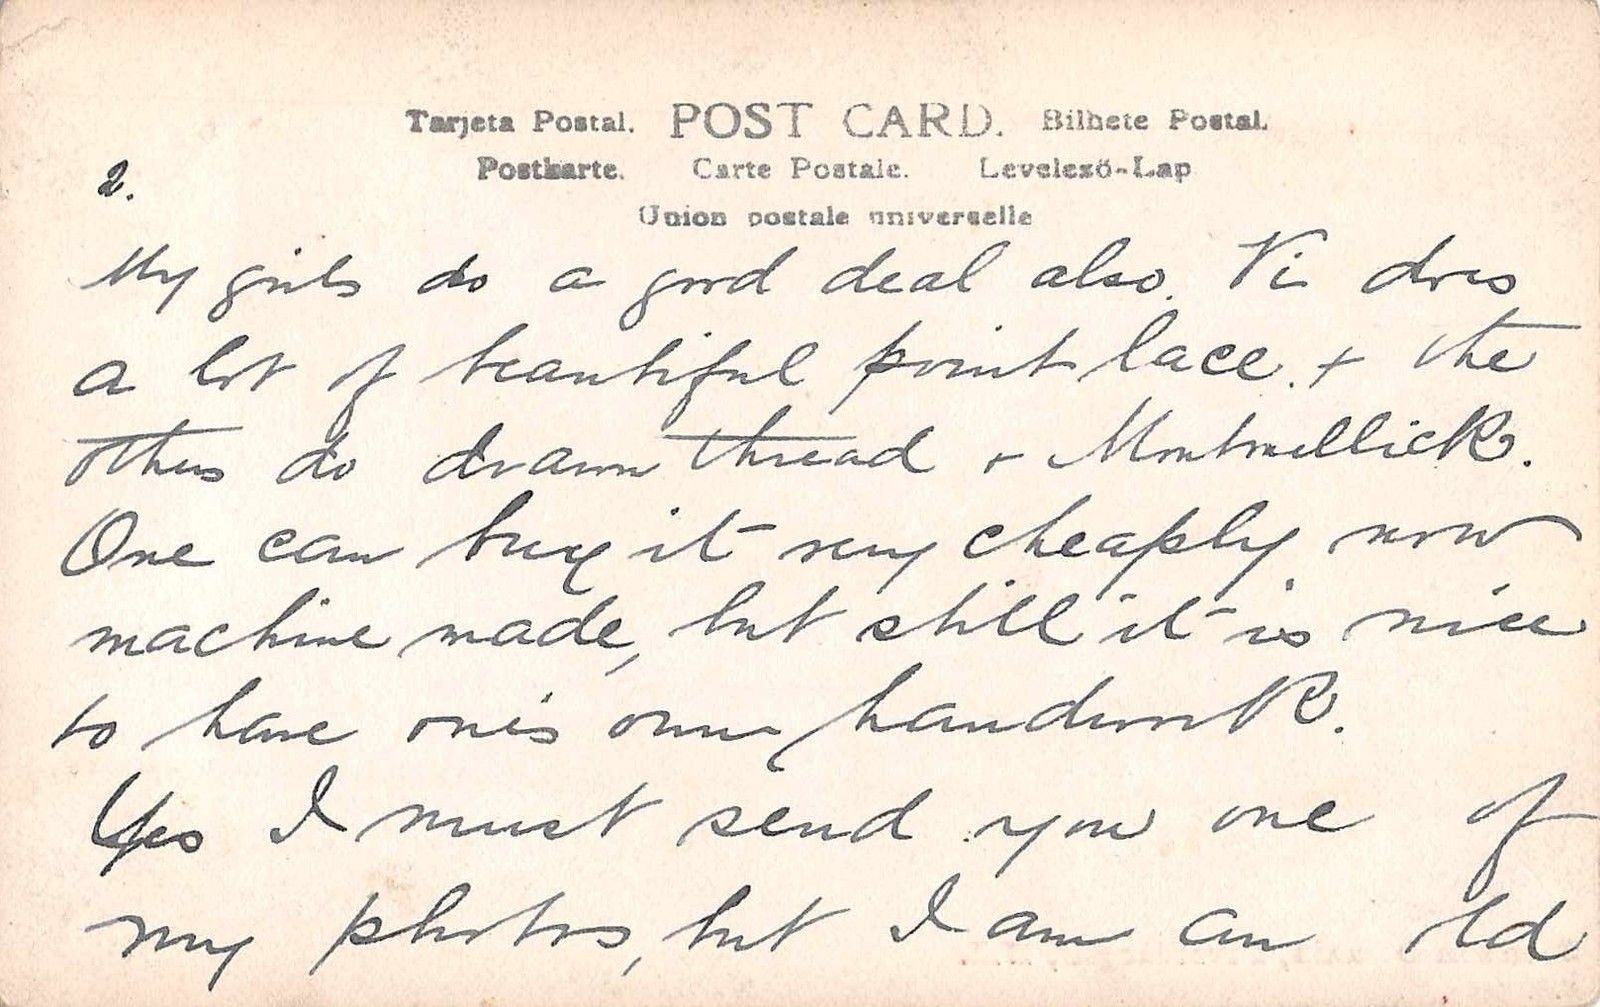 Tarjeta Postal. POST CARD. Bilhete Postal.
Postkarte. Carte Postale. Levelező-Lap
Union postale universelle
2.
My girls do a good deal also. Vi does
a lot of beautiful point lace. + the
others do drawn thread + Montmellick.
One can buy it very cheaply now
machine made, but still it is nice
to have one's own handwork.
Yes I must send you one of
my photos, but I am an old